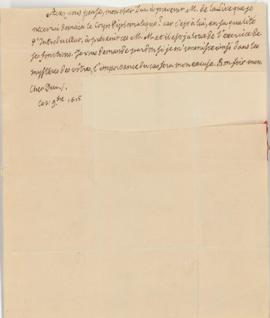 Avez vous pensé, mon cher Duc, à prévenir M. de la Live que je
recevrai demain le Corps diplomatique? car c'est à lui, en sa qualité
d'Introducteur, à prévenir ces M. M. et il est jaloux de l'exercice de
ses fonctions. Je vous demande pardon si je m'immisce ainsi dans les
mystères des vôtres, l'importance du cas sera mon excuse. Bonsoir mon
cher Duc.
Ce 9bre 1815